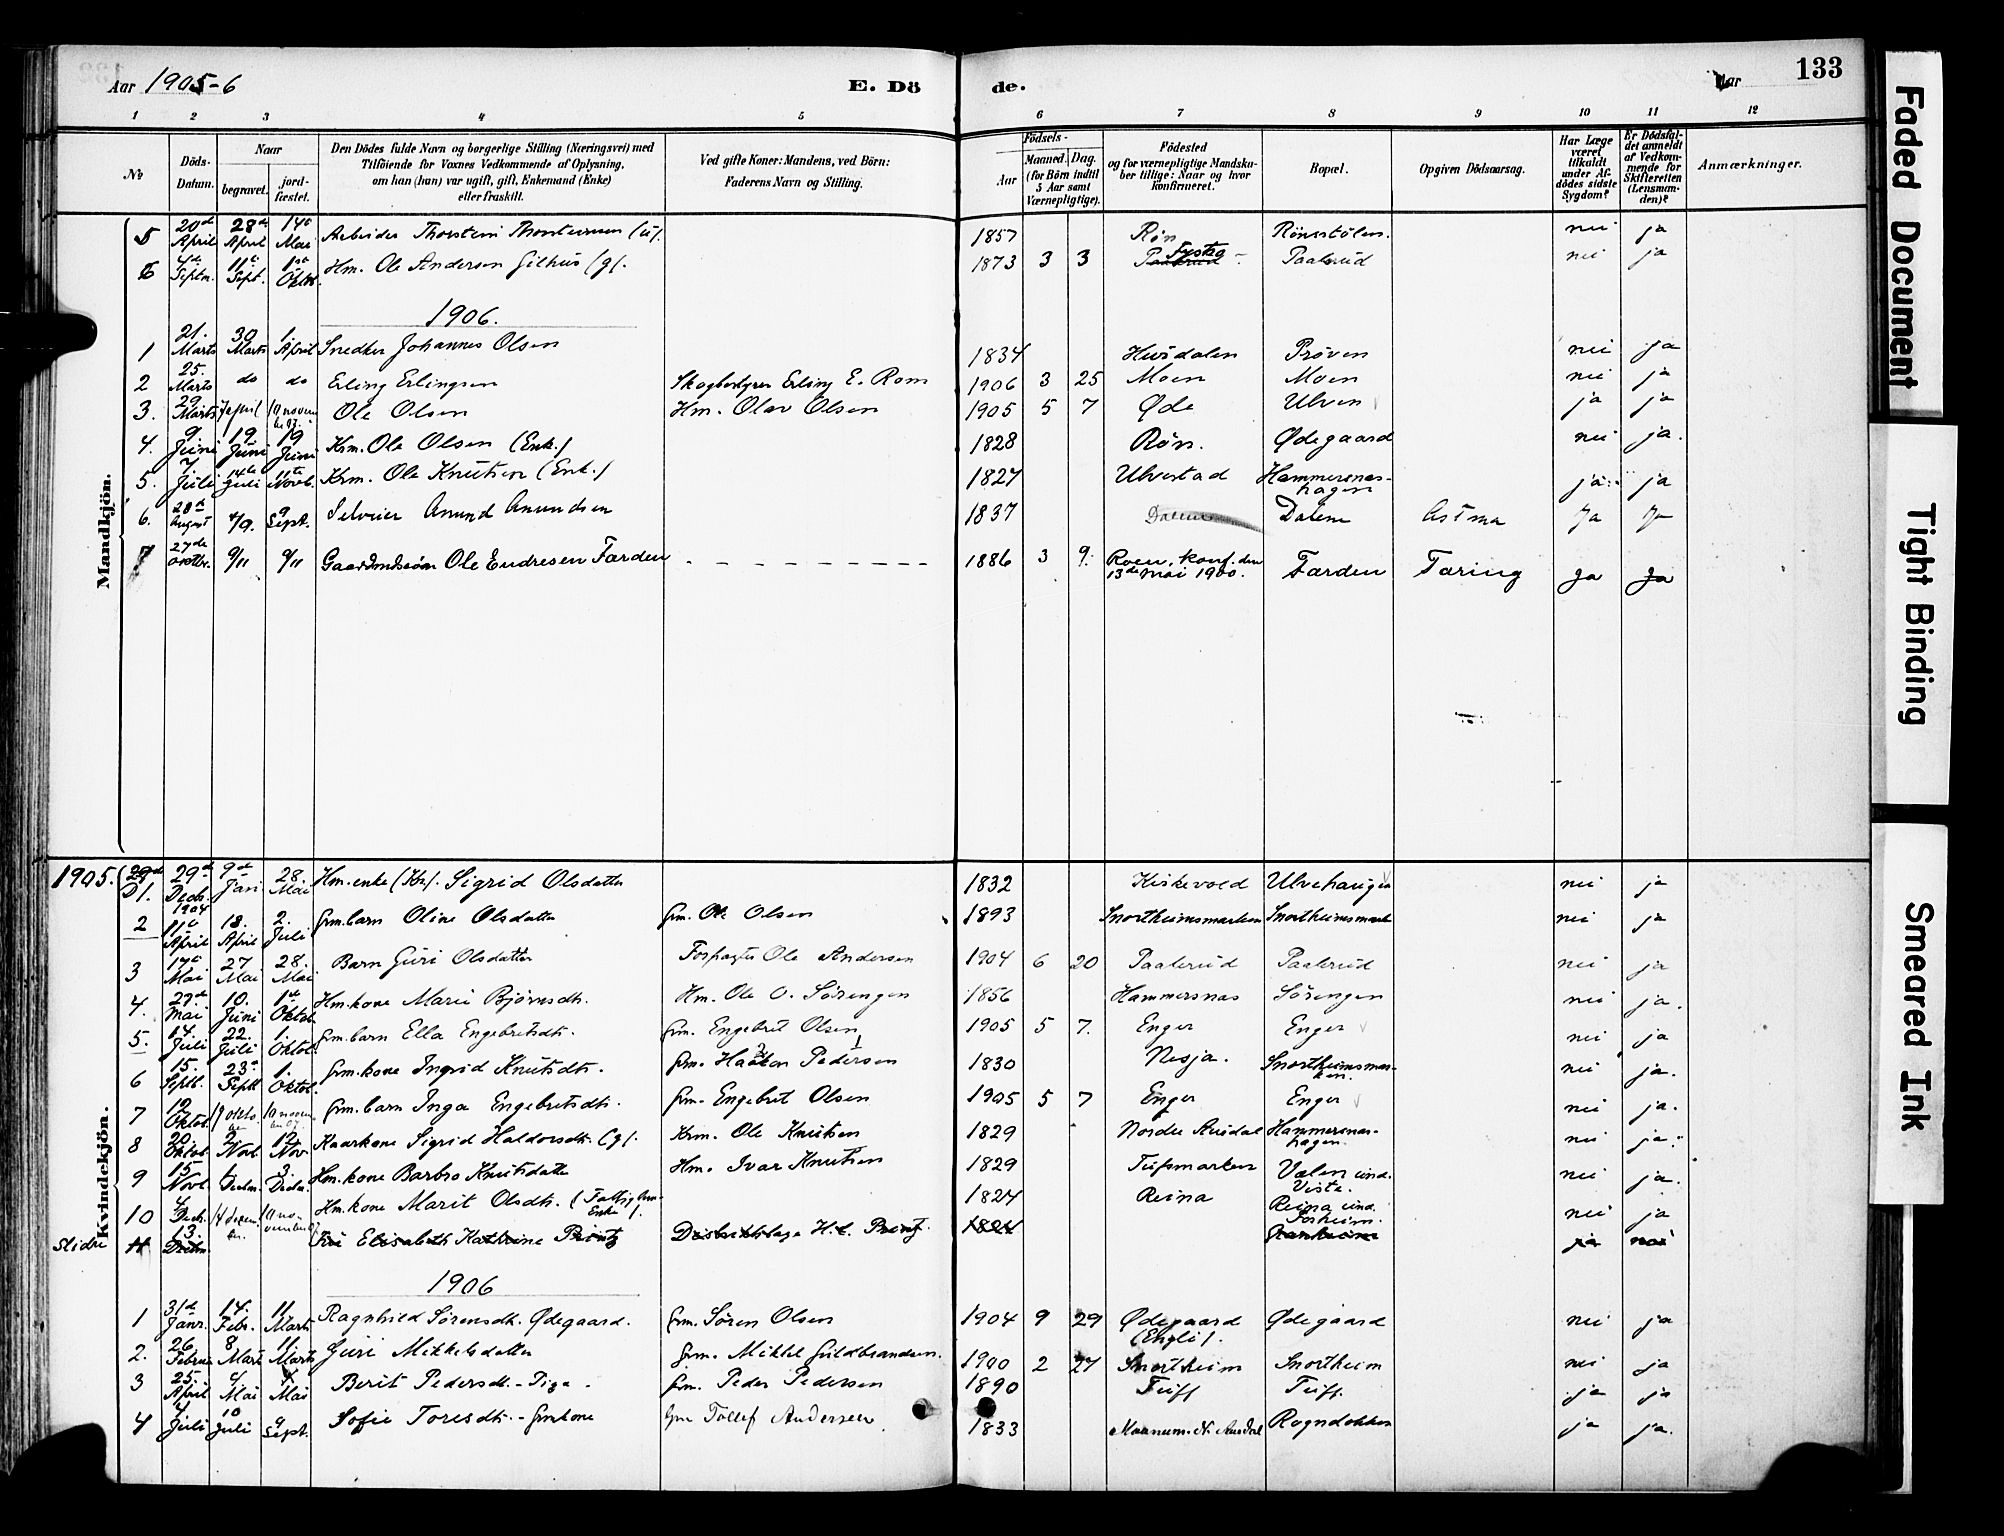 Aar 1905-6 E. Dö de. Aar 133
1 2 3 4 5 6 7 8 9 10 11 12
No
Döds-Datum.
Naar begravet. jord-fæstet.
Den Dödes fulde Navn og borgerlige Stilling (Næringsvei) med
Tilföiende for Voxnes Vedkommende af Oplysning,
om han (hun) var ugift, gift, Enkemand (Enke)
eller fraskilt.
Ved gifte Koner: Mandens, ved Börn:
Faderens Navn og Stilling.
Födsels-
Aar Maaned. Dag.
(for Börn indtil 5 Aar samt Værnepligtige).
Födested
og for værnepligtige Mandskaber tillige: Naar og hvor konfirmeret.
Bopæl.
Opgiven Dödsaarsag.
Har Læge været tilkaldt under Afdödes sidste Sygdom?
Er Dödsfaldet anmeldt af Vedkommende for Skifteretten (Lensmanden)?
Anmærkninger.
Mandkjön.
5 20de April 28de April 14de Mai Arbeider Thorstein (u). 1857 Røn Rønsstølen. nei ja
6 4de Septm. 11te Sept. 1ste Oktbr. Hm. Ole Andersen Gilhus (g). 1873 3 3 Paalerud Paalerud nei ja
1906.
1 21. Marts 30 Marts 1. April Snedker Johannes Olsen 1834 Hurdalen Prøven nei ja
2 25. Marts do do Erling Erlingsen Skogbestyrer Erling E. Rom 1906 3 25 Moen Moen nei ja
3. 29. Marts 7 april 10 novem Ole Olsen Hm. Olav Olsen 1905 5 7 Øde Ulven ja ja
4. 9. Juni 19. Juni 19 Juni Krm. Ole Olsen (Enk.) 1828 Røn. Ødegaard nei ja.
5. 7. Juli 14de Juli 11te Novb. Krm. Ole Knutsen (Enk.) 1827 Ulvestad Hammersnes-hagen ja ja
6. 28de August 4/9. 9 Sept. Selveier Anund Anundsen 1837 Dalene Dalene Astma Ja Ja
7 27de Oktbr. 9/11 9/11 Gaardmdssøn Ole Endresen Færden 1886 3 9. Roen, konf. den 13de Mai 1900. Færden Tæring Ja Ja
Kvindekjön.
1905. 1. 29de Decbr. 1904 9de Jan 28. Mai Hm. enke (Kr). Sigrid Olsdatter 1832 Kirkevold Ulvehaugen nei ja
2 11te April 18. April 2. Juli Grm. barn Oline Olsdatter Grm. Ole Olsen 1893 Snortheimsmarken Snortheimsmark nei ja
3 17de Mai 27 Mai 28. Mai Barn Guri Olsdatter Forpagter Ole Andersen 1904 6 20 Paalerud Paalerud nei ja
4. 27de Mai 10. Juni 1ste Oktob. Hm. kone Marie Bjørnsdtr. Hm. Ole O. Sørengen 1856 Hammersnæs Sørengen nei ja.
5. 14. Juli 22. Juli 1. Oktob. Grm. barn Ella Engebretsdtr. Grm. Engebret Olsen 1905 5 7. Enger Enger nei ja
6 15. Septb. 23de Septb. 1. Oktob. Grm. kone Ingrid Knutsdtr. Grm. Haakon Pedersen 1830 Nesja. Snortheimsmar-ken. nei ja.
7 12. Oktob. 19 okto ber 10 novem ber 07. Grm. barn Inga Engebretsdtr. Grm. Engebret Olsen 1905 5 7 Enger Enger nei ja.
8 20. Oktob. 2. Novb. 12. Nov. Kaarkone Sigrid Haldorsdtr. (g). Krm. Ole Knutsen 1829 Nordre Aurdal Hammersnes-hagen. nei ja.
9 15 Novb. 1. Decbr. 3. Decbr. Hm. kone Barbro Knutsdatter Hm. Ivar Knutsen 1829 Tufsmarken Vælen und. Viste. nei ja.
10 4 Decb. 14 decem ber 10 no vember 07 Hm. kone Marit Olsdtr. (Fattiglem. Enke). 1824 Reina Reina und. Forheim. nei ja
Slidre 11 13. Decbr. Fru Elisabeth Kathrine Printz Distriktslæge H. C. Printz. 1824 ja nei
1906
1 31de Janr. 14. Febr. 11. Marts Ragnhild Sørensdtr. Ødegaard. Grm. Søren Olsen 1904 9 29 Ødegaard (Engli). Ødegaard nei ja
2. 26 Februar 8 Mars 11. Marts Guri Mikkelsdatter Grm. Mikkel Guldbrandsen. 1900 2 27 Snortheim Snortheim nei ja
3 25. April 4. Mai Mai Berit Pedersdtr. - Pige. Grm. Peder Pedersen 1890 Tuff Tuff. ja ja
4 4 Juli 10 Juli 9 Sept. Sofie Toresdtr. - Grmkone Grm Tollef Andersen 1833 Maanum. N. Aurdal Rogndokken ja ja.
Faded Document
Tight Binding
Smeared Ink